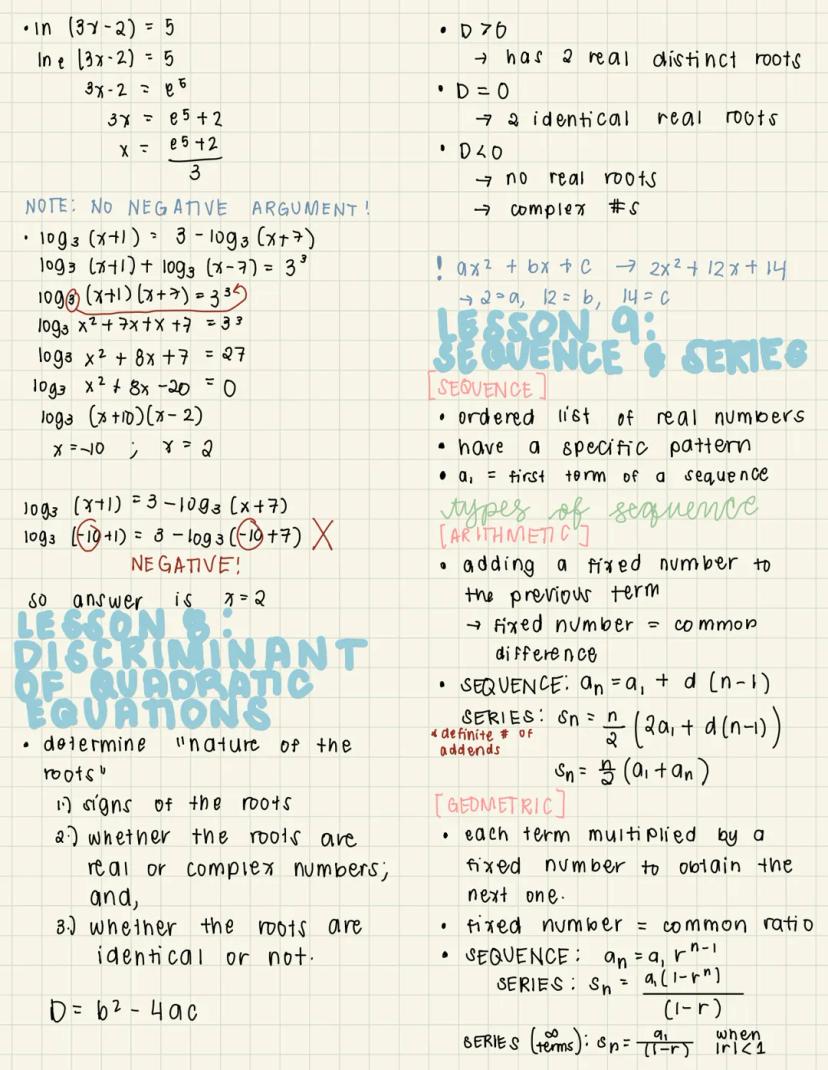 • ln (3x-2) = 5
ln e (3x-2) = 5
3x-2 = e⁵
3x = e⁵+2
x = e⁵+2
3
NOTE: NO NEGATIVE ARGUMENT!
• log₃ (x+1) = 3 - log₃ (x+7)
log₃ (x+1) + log₃ (x-7) = 3³
log₃ (x+1)(x+7) = 3³
log₃ x² + 7x+x +7 = 3³
log₃ x² + 8x +7 = 27
log₃ x² + 8x -20 = 0
log₃ (x+10)(x-2)
x = -10 ; x = 2
log₃ (x+1) = 3 - log₃ (x+7)
log₃ (-10+1) = 3 - log₃ (-10+7) X
NEGATIVE!
so answer is x=2
LESSON 8:
DISCRIMINANT
OF QUADRATIC
EQUATIONS
• determine "nature of the
roots"
1.) signs of the roots
2.) whether the roots are
real or complex numbers;
and,
3.) whether the roots are
identical or not.
D = b² - 4ac
• D > 0
→ has 2 real distinct roots
• D = 0
→ 2 identical real roots
• D < 0
→ no real roots
→ complex #s
! ax² + bx + c → 2x² + 12x + 14
→ 2=a, 12=b, 14=c
LESSON 9:
SEQUENCE & SERIES
[SEQUENCE]
• ordered list of real numbers
• have a specific pattern
• a₁ = first term of a sequence
types of sequence
[ARITHMETIC]
• adding a fixed number to
the previous term
→ fixed number = common
difference
• SEQUENCE: aₙ = a₁ + d (n-1)
SERIES: Sₙ = n/2 (2a₁ + d(n-1))
*definite # of
addends
Sₙ = n/2 (a₁ + aₙ)
[GEOMETRIC]
• each term multiplied by a
fixed number to obtain the
next one.
• fixed number = common ratio
• SEQUENCE: aₙ = a₁ rⁿ⁻¹
SERIES: Sₙ = a₁(1-rⁿ)
(1-r)
SERIES (∞ terms): Sₙ = a₁/(1-r) when |r|<1